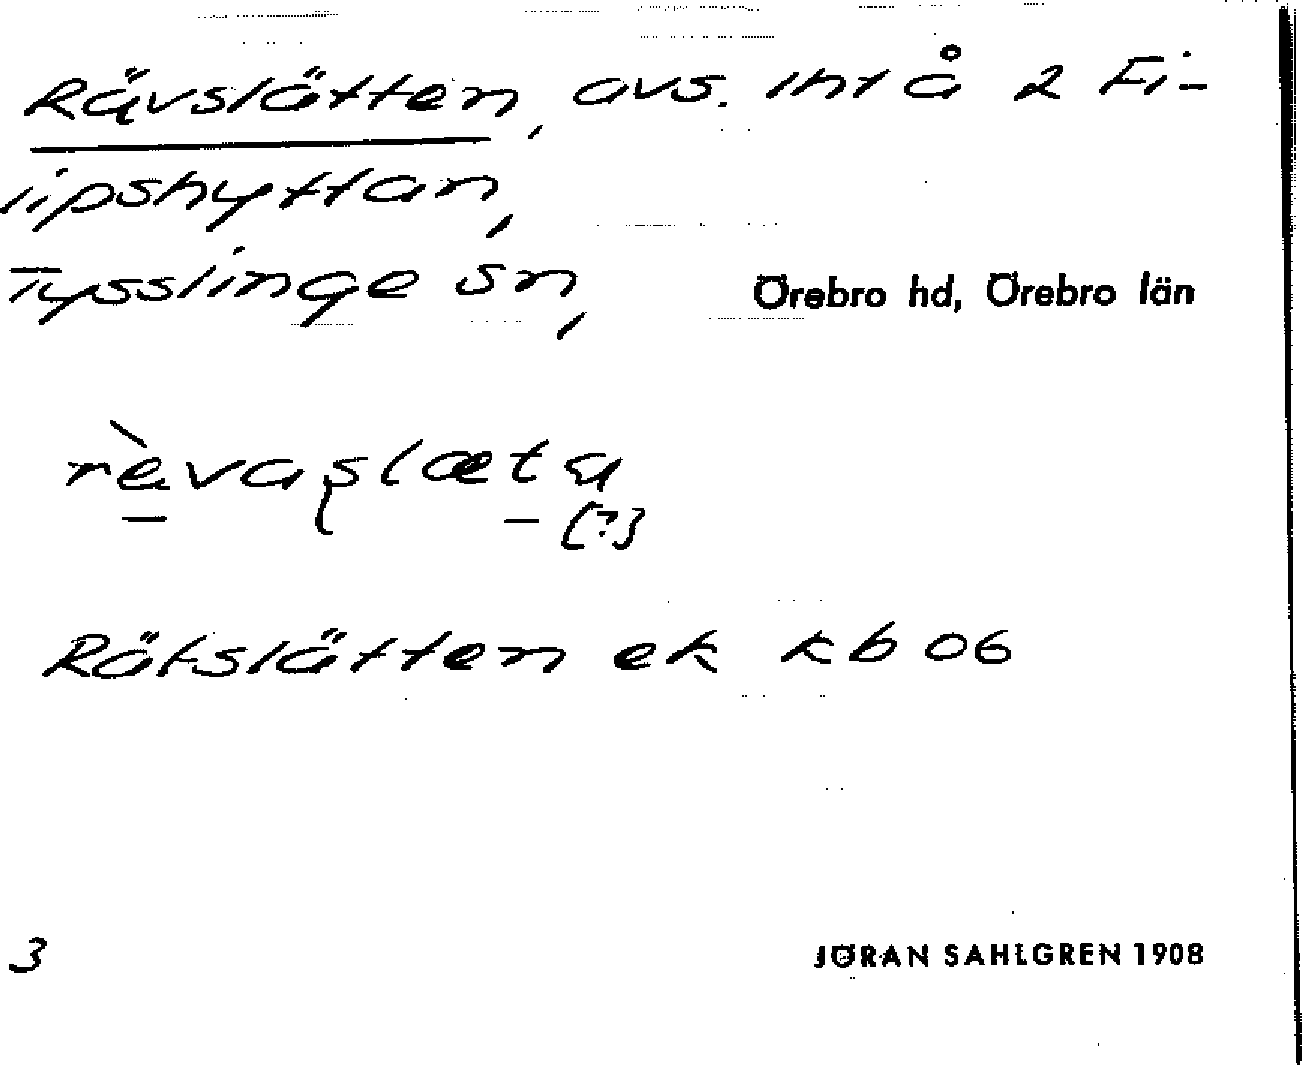 Rävslätten, avs. int å 2 Fi-
lipshyttan,
Tysslinge sn, Örebro hd, Örebro län
rèvaslætu
(?)
Räfslätten ek kb 06
3 JÖRAN SAHLGREN 1908